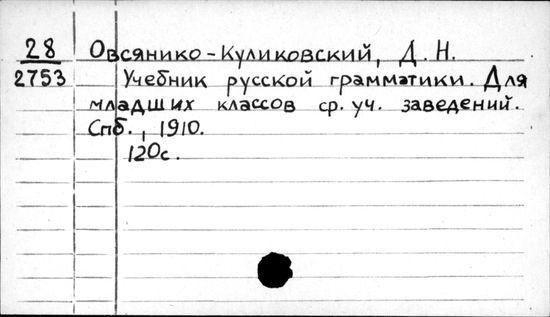 28 Овсянико-Куликовский, Д. Н.
2753 Учебник русской грамматики. Для
младших классов ср. уч. заведений.
Спб., 1910.
120с.